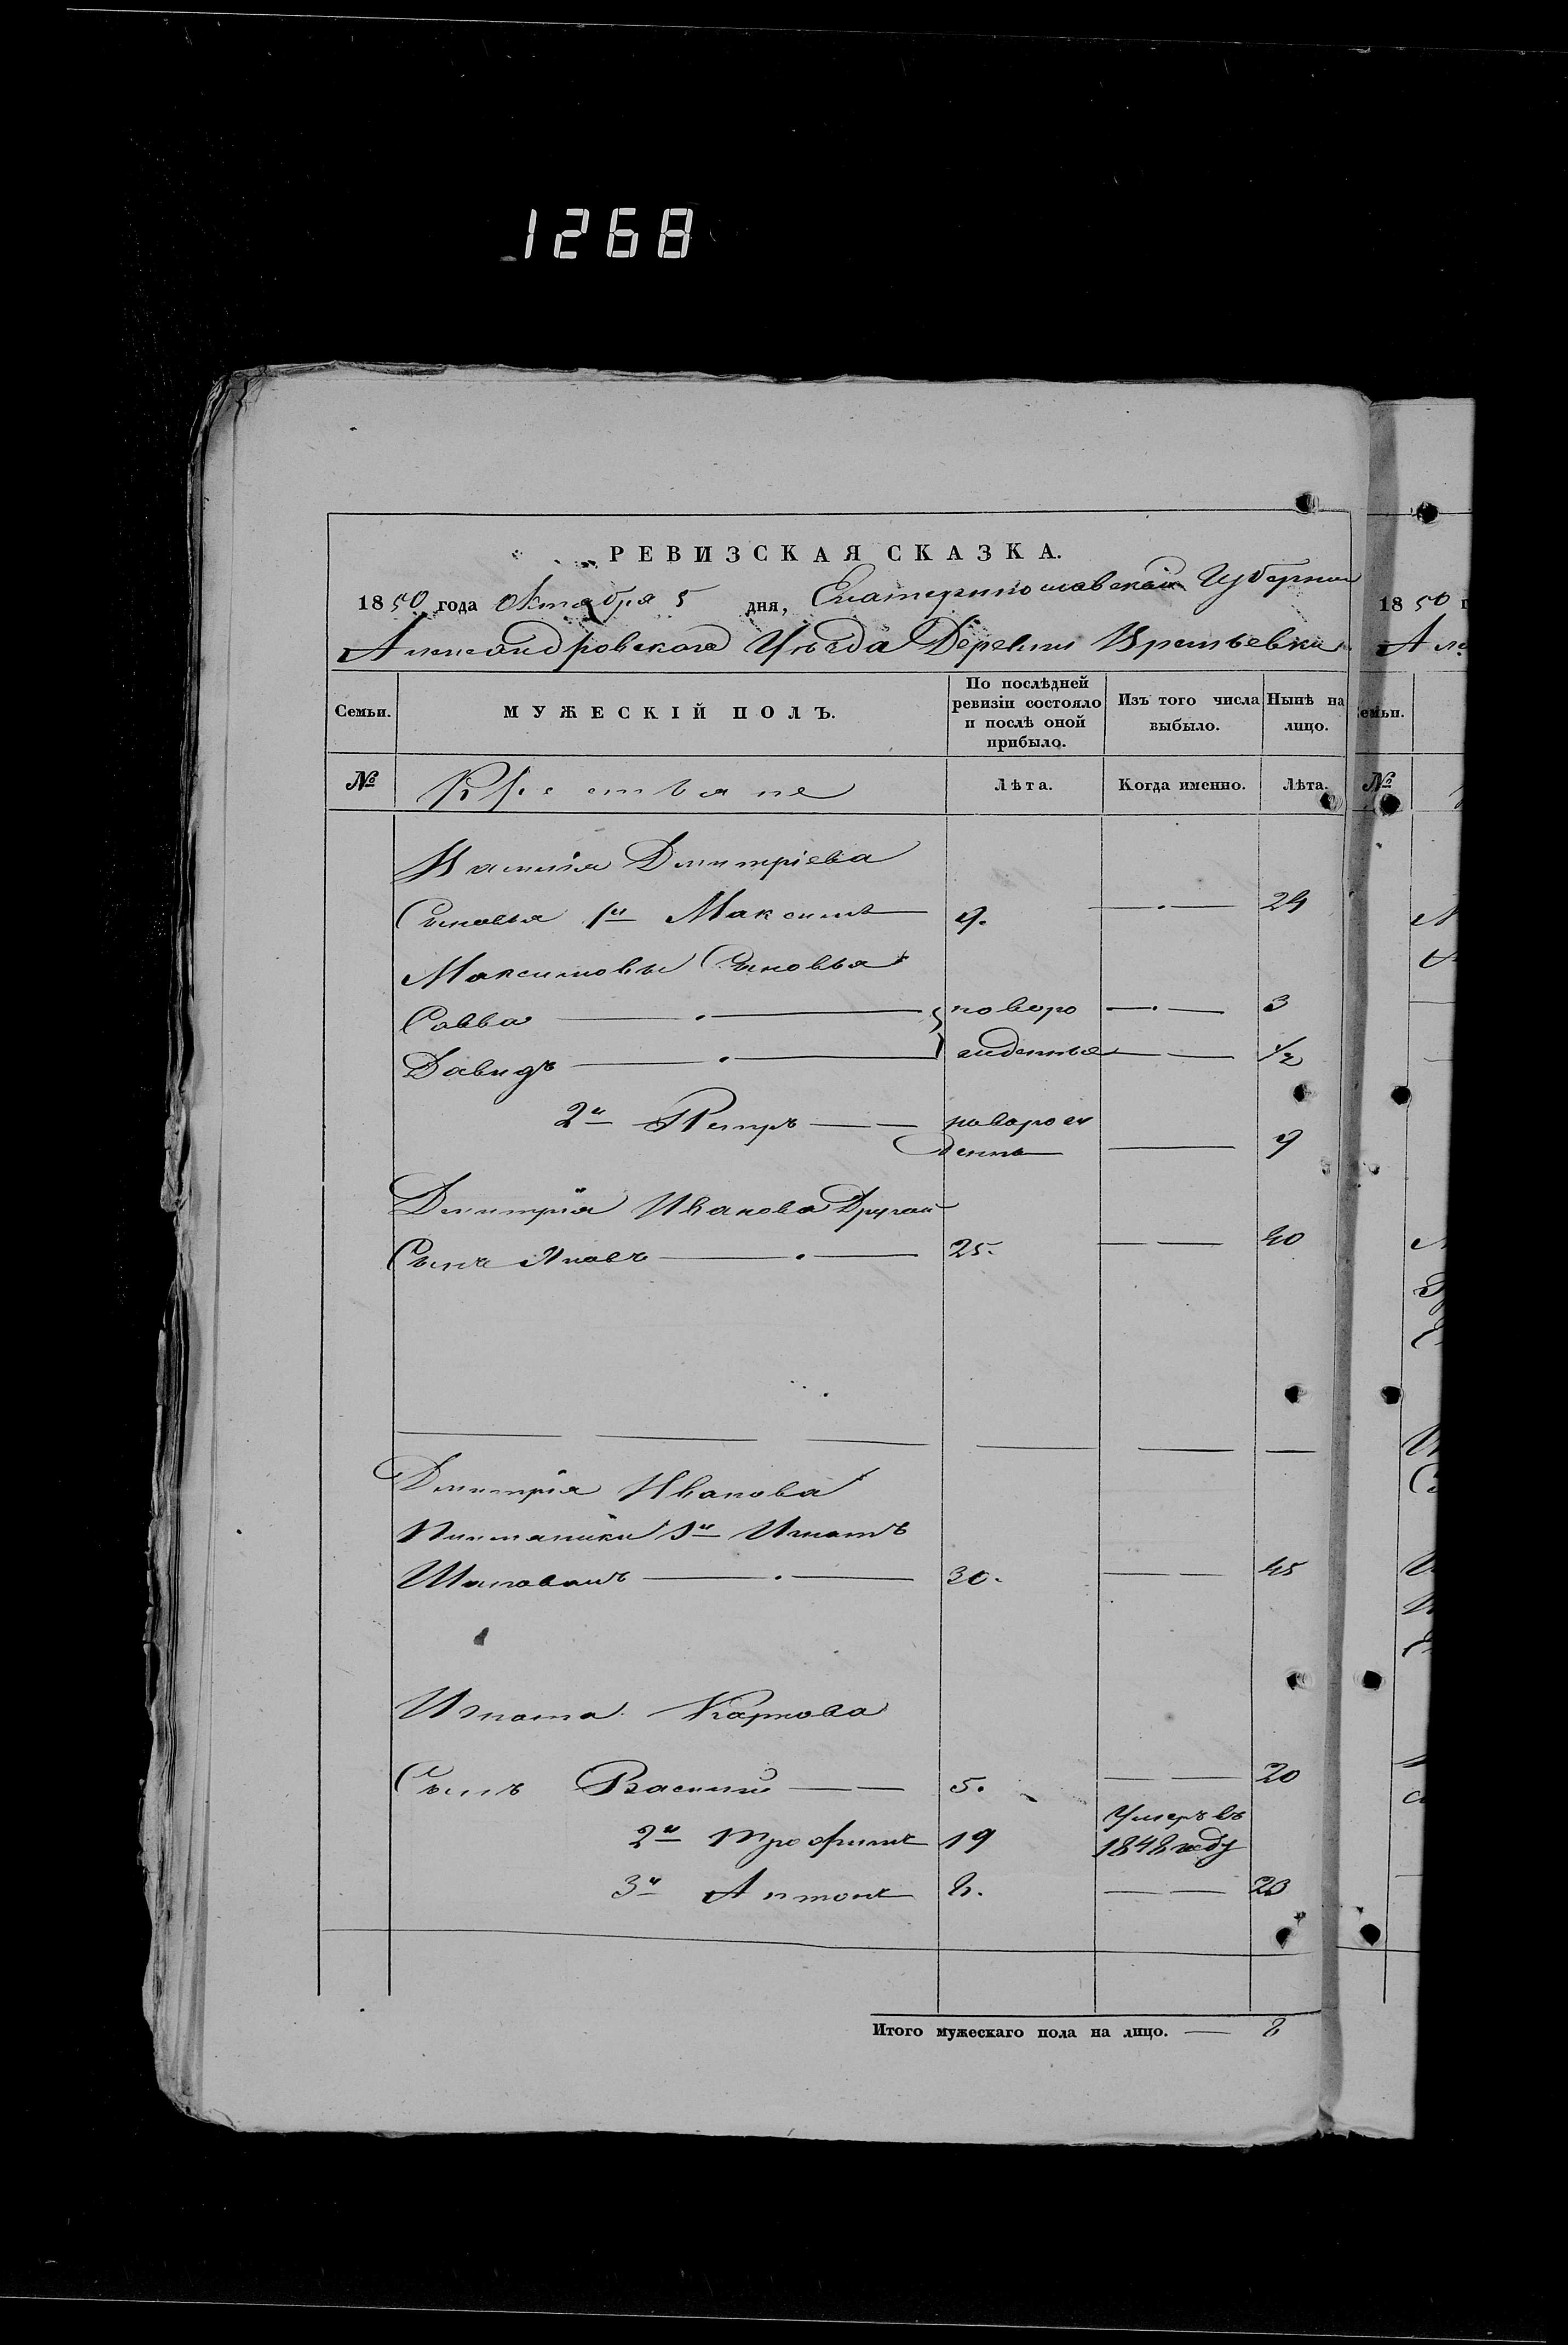 1268
РЕВИЗСКАЯ СКАЗКА.
1850 года Октября 5 дня, Екатеринославской Губернии
Александровского Уѣзда Деревни Времьевки
Семьи. МУЖЕСКІЙ ПОЛЪ. По послѣдней ревизіи состояло и послѣ оной прибыло. Изъ того числа выбыло. Нынѣ на лицо.
№ Крестьяне Лѣта. Когда именно. Лѣта.
Дмитріева
Сыновья 1й Максимъ 9. 24
Максимовы Сыновья
Савва новоро 3
Давидъ жденные 1/2
2й Петръноворож
денъ 9
Дмитрія Иванова Другой
Сынъ Яковъ 25. 40
Дмитрія Иванова
1й Игнатъ
30. 45
Игната Карпова
Сынъ Василий 5. 20
2й Трофимъ 19 Умеръ въ
1848 году
3й Антонъ 8. 23
Итого мужескаго пола на лицо. 8
1850 г
Але
емьи.
№